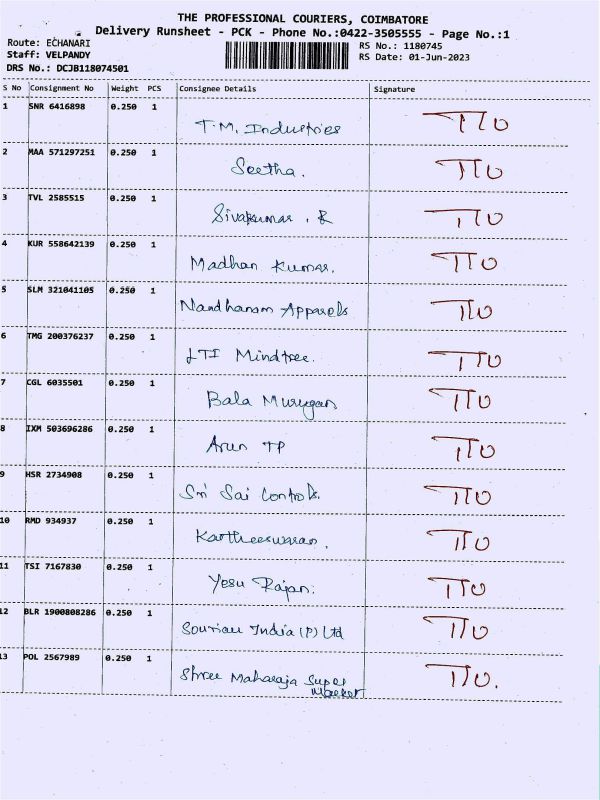 THE PROFESSIONAL COURIERS, COIMBATORE
Delivery Runsheet - PCK - Phone No.:0422-3505555 - Page No.:1
Route: ECHANARI
Staff: VELPANDY
DRS No.: DCJB118074501
RS No.: 1180745
RS Date: 01-Jun-2023
S No Consignment No Weight PCS Consignee Details Signature
1 SNR 6416898 0.250 1
T.M. Industries
2 MAA 571297251 0.250 1
Seetha.
3 TVL 2585515 0.250 1
Sivakumar . R
4 KUR 558642139 0.250 1
Madhan Kumar.
5 SLM 321041105 0.250 1
Nandhanam Apparels
6 TMG 200376237 0.250 1
LTI Mindtree.
7 CGL 6035501 0.250 1
Bala Murugan
8 IXM 503696286 0.250 1
Arun TP
9 HSR 2734908 0.250 1
Sri Sai Controls.
10 RMD 934937 0.250 1
Kartheeswaran.
11 TSI 7167830 0.250 1
Yesu Rajan.
12 BLR 1900808286 0.250 1
Souriau India (P) Ltd
13 POL 2567989 0.250 1
Shree Maharaja Super
Market